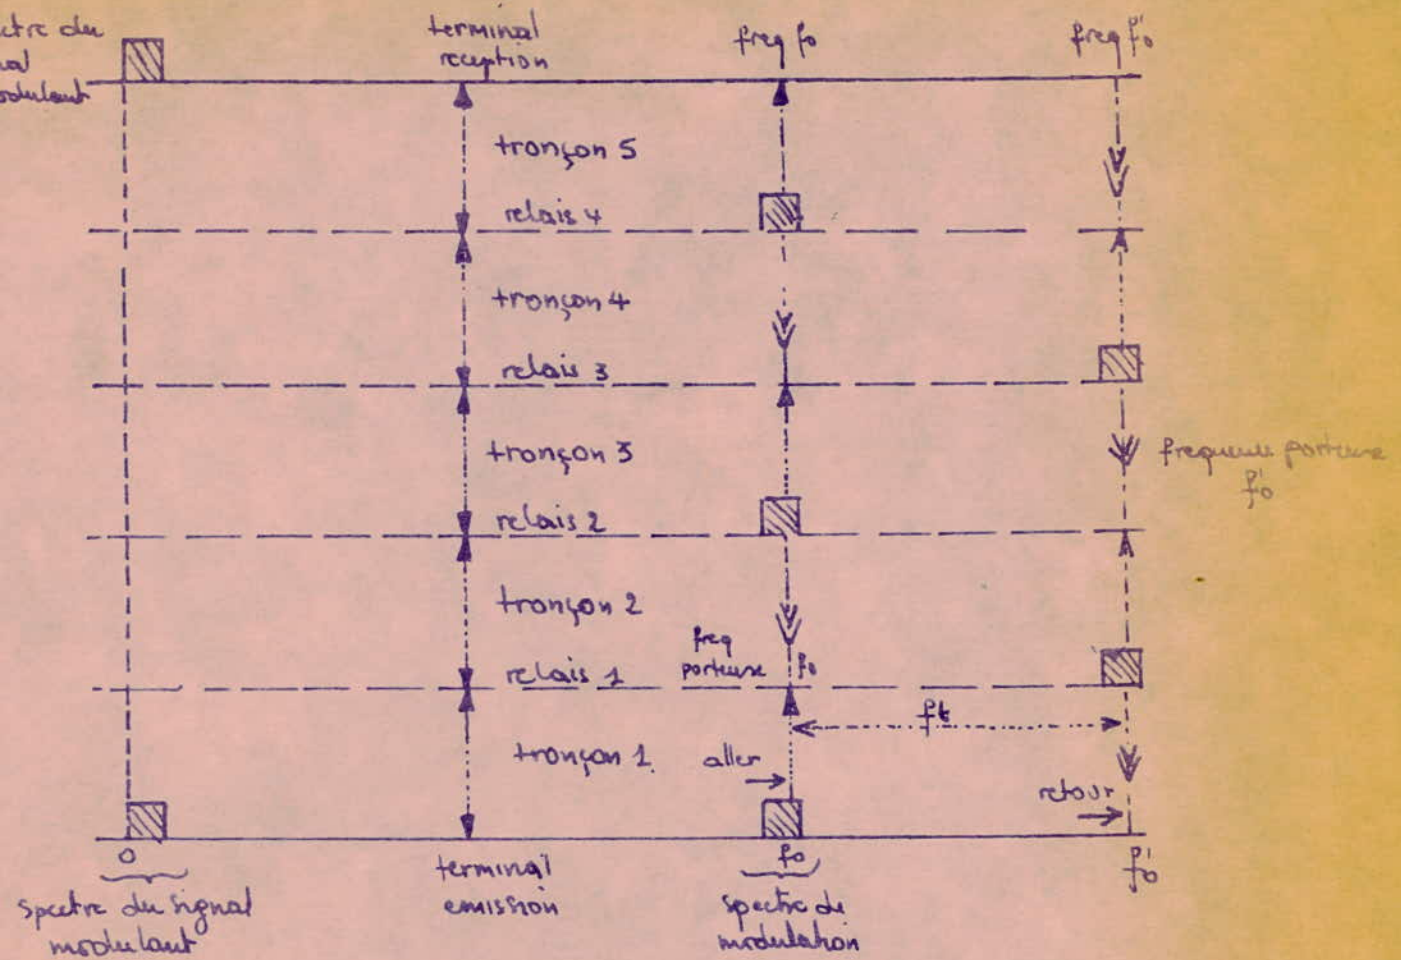 spectre du
signal
modulant
terminal
reception
freq fo
freq f'o
tronçon 5
relais 4
tronçon 4
relais 3
frequence porteuse
f'o
tronçon 3
relais 2
tronçon 2
freq
porteuse fo
relais 1
ft
tronçon 1
aller
retour
o
fo
f'o
spectre du signal
modulant
terminal
emission
spectre de
modulation